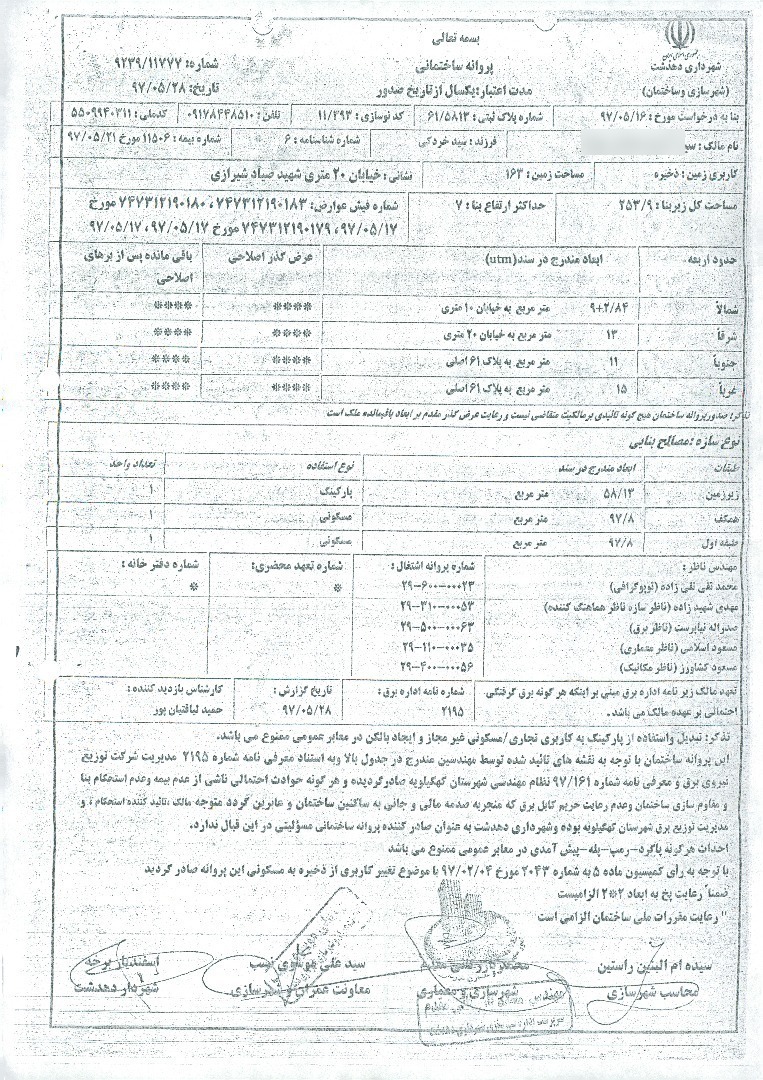 بسمه تعالی
شهرداری دهدشت
(شهرسازی وساختمان)
پروانه ساختمانی
مدت اعتبار: یکسال از تاریخ صدور
شماره: ۹۲۳۹/۱۱۷۷۷
تاریخ: ۹۷/۰۵/۲۸
بنا به درخواست مورخ: ۹۷/۰۵/۱۶ شماره پلاک ثبتی: ۶۱/۵۸۱۳ کد نوسازی: ۱۱/۲۹۳ تلفن: ۰۹۱۷۸۴۴۸۵۱۰ کدملی: ۵۵۰۹۹۴۰۳۱۱
نام مالک: فرزند: سید خردکی شماره شناسنامه: ۶ شماره بیمه: ۱۱۵۰۶ مورخ ۹۷/۰۵/۲۱
کاربری زمین: ذخیره مساحت زمین: ۱۶۳ نشانی: خیابان ۲۰ متری شهید صیاد شیرازی
مساحت کل زیربنا: ۲۵۳/۹ حداکثر ارتفاع بنا: ۷ شماره فیش عوارض: ۷۴۷۳۱۲۱۹۰۱۸۳، ۷۴۷۳۱۲۱۹۰۱۸۰ مورخ
۹۷/۰۵/۱۷، ۷۴۷۳۱۲۱۹۰۱۷۹ مورخ ۹۷/۰۵/۱۷، ۹۷/۰۵/۱۷
حدود اربعه ابعاد مندرج در سند(utm) عرض گذر اصلاحی باقی مانده پس از برهای
اصلاحی
شمالاً ۹+۲/۸۴ متر مربع به خیابان ۱۰ متری **** ****
شرقاً ۱۳ متر مربع به خیابان ۲۰ متری **** ****
جنوباً ۱۱ متر مربع به پلاک ۶۱ اصلی **** ****
غرباً ۱۵ متر مربع به پلاک ۶۱ اصلی **** ****
تذکر: صدورپروانه ساختمان هیچ گونه تائیدی برمالکیت متقاضی نیست و رعایت عرض گذر مقدم بر ابعاد باقیمانده ملک است
نوع سازه: مصالح بنایی
طبقات ابعاد مندرج در سند نوع استفاده تعداد واحد
زیرزمین ۵۸/۱۳ متر مربع پارکینگ ۱
همکف ۹۷/۸ متر مربع مسکونی ۱
طبقه اول ۹۷/۸ متر مربع مسکونی ۱
مهندس ناظر: شماره پروانه اشتغال: شماره تعهد محضری: شماره دفتر خانه:
محمد تقی تقی زاده (توپوگرافی) ۲۹-۶۰۰-۰۰۰۲۳ * *
مهدی شهید زاده (ناظر سازه ناظر هماهنگ کننده) ۲۹-۳۱۰-۰۰۰۵۳
صدراله نیاپرست (ناظر برق) ۲۹-۵۰۰-۰۰۰۶۳
مسعود اسلامی (ناظر معماری) ۲۹-۱۱۰-۰۰۰۳۵
مسعود کشاورز (ناظر مکانیک) ۲۹-۴۰۰-۰۰۰۵۶
تعهد مالک زیر نامه اداره برق مبنی بر اینکه هر گونه برق گرفتگی شماره نامه اداره برق: تاریخ گزارش: کارشناس بازدید کننده:
احتمالی بر عهده مالک می باشد. ۲۱۹۵ ۹۷/۰۵/۲۸ حمید لیاقتیان پور
تذکر: تبدیل واستفاده از پارکینگ به کاربری تجاری/مسکونی غیر مجاز و ایجاد بالکن در معابر عمومی ممنوع می باشد.
این پروانه ساختمان با توجه به نقشه های تائید شده توسط مهندسین مندرج در جدول بالا وبه استناد معرفی نامه شماره ۲۱۹۵ مدیریت شرکت توزیع
نیروی برق و معرفی نامه شماره ۹۷/۱۶۱ نظام مهندسی شهرستان کهگیلویه صادرگردیده و هر گونه حوادث احتمالی ناشی از عدم بیمه وعدم استحکام بنا
و مقاوم سازی ساختمان وعدم رعایت حریم کابل برق که منجربه صدمه مالی و جانی به ساکنین ساختمان و عابرین گردد متوجه مالک ،تائید کننده استحکام و
مدیریت توزیع برق شهرستان کهگیلویه بوده وشهرداری دهدشت به عنوان صادر کننده پروانه ساختمانی مسؤلیتی در این قبال ندارد.
احداث هرگونه پاگرد-رمپ-پله-پیش آمدی در معابر عمومی ممنوع می باشد
با توجه به رأی کمیسیون ماده ۵ به شماره ۲۰۴۳ مورخ ۹۷/۰۲/۰۴ با موضوع تغییر کاربری از ذخیره به مسکونی این پروانه صادر گردید
ضمناً رعایت پخ به ابعاد ۲*۲ الزامیست
" رعایت مقررات ملی ساختمان الزامی است
سیده ام البنین راستین سید علی موسوی نسب اسفندیار برجه
محاسب شهرسازی شهرسازی و معماری معاونت عمران و شهرسازی شهردار دهدشت